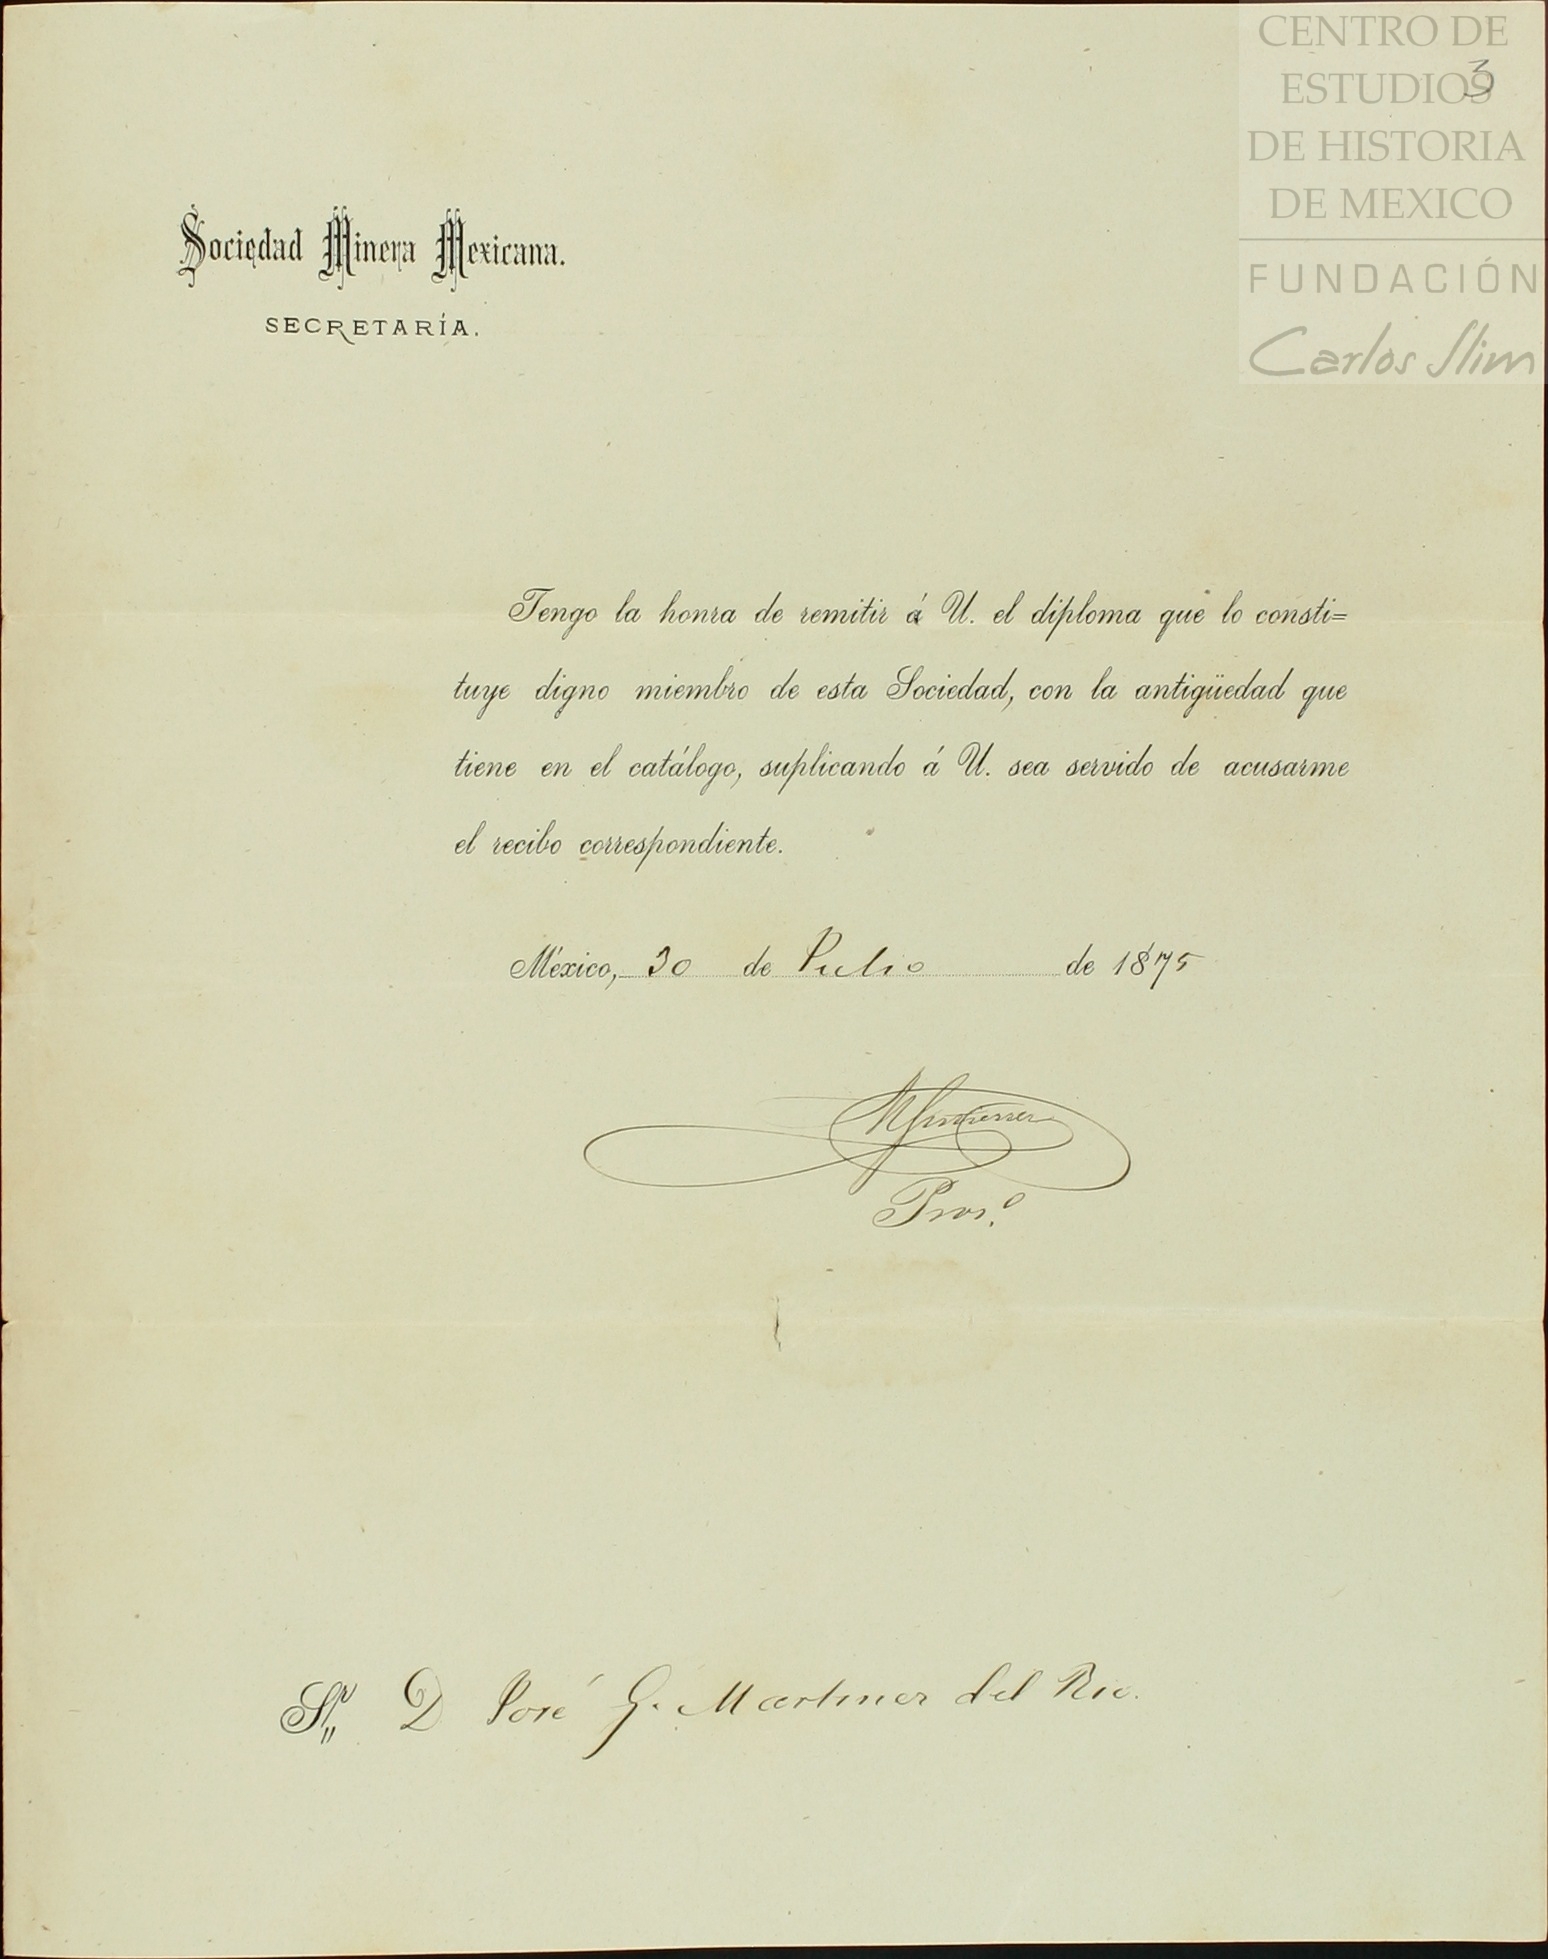 CENTRO DE
ESTUDIOS
DE HISTORIA
DE MEXICO
FUNDACIÓN
Carlos Slim
3
Sociedad Minera Mexicana.
SECRETARÍA.
Tengo la honra de remitir á U. el diploma que lo consti=
tuye digno miembro de esta Sociedad, con la antigüedad que
tiene en el catálogo, suplicando á U. sea servido de acusarme
el recibo correspondiente.
México, 30 de Julio de 1875
Sr. D José G. Martinez del Rio.